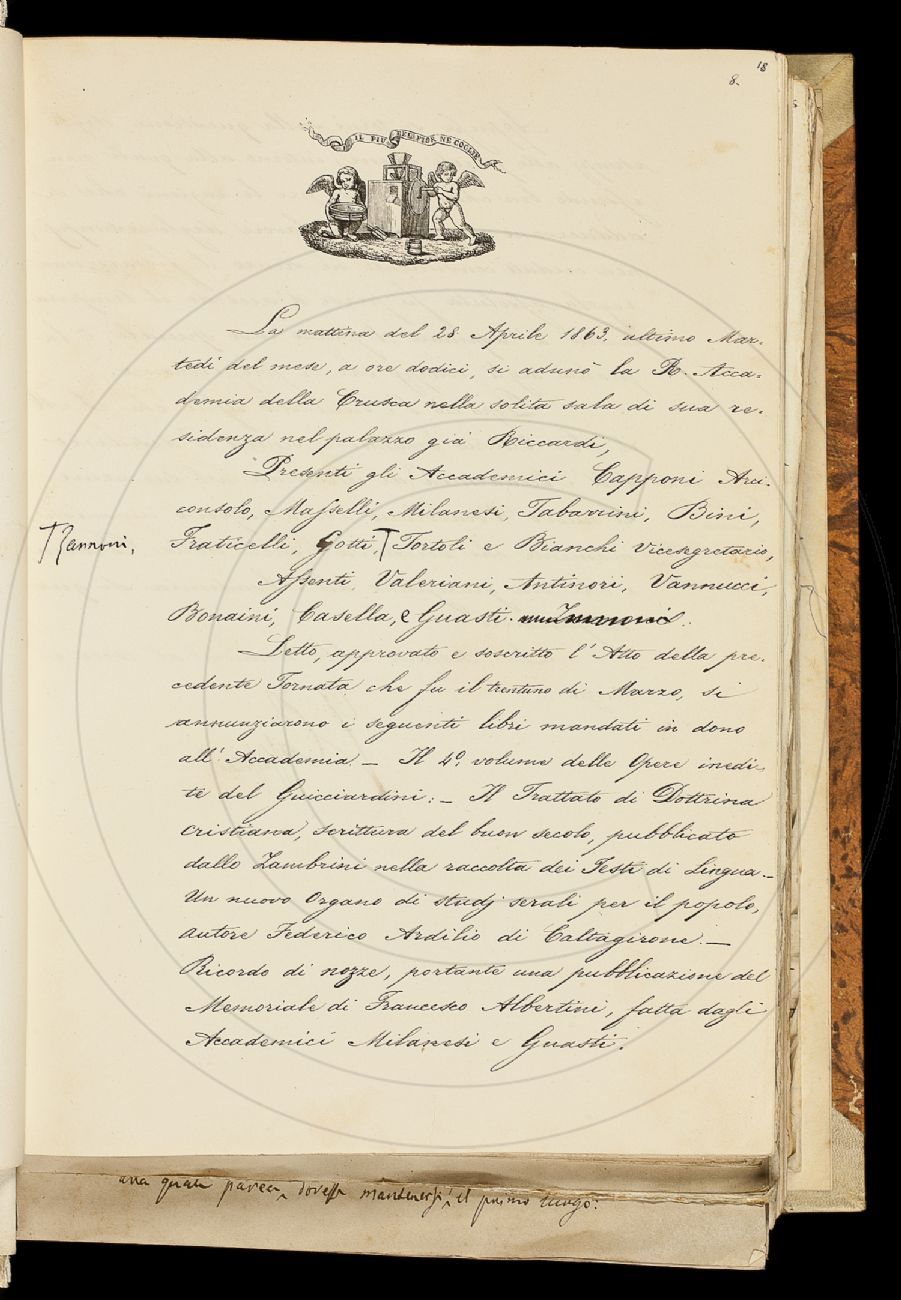 18
8.
IL PIÙ BEL FIOR NE COGLIE
La mattina del 28 Aprile 1863, ultimo Mar-
tedì del mese, a ore dodici, si adunò la R. Acca-
demia della Crusca nella solita sala di sua re-
sidenza nel palazzo già Riccardi,
Presenti gli Accademici Capponi Arci-
consolo, Masselli, Milanesi, Tabarrini, Bini,
Fraticelli, Gotti, Tortoli e Bianchi Vicesegretario,
Zannoni,
Assenti, Valeriani, Antinori, Vannucci,
Bonaini, Casella, e Guasti.
Letto, approvato e soscritto l'Atto della pre-
cedente Tornata che fu il trentuno di Marzo, si
annunziarono i seguenti libri mandati in dono
all'Accademia. — Il 4.º volume delle Opere inedi-
te del Guicciardini: — Il Trattato di Dottrina
cristiana, scrittura del buon secolo, pubblicato
dallo Zambrini nella raccolta dei Testi di Lingua. —
Un nuovo Organo di studj serali per il popolo,
autore Federico Ardilio di Caltagirone. —
Ricordo di nozze, portante una pubblicazione del
Memoriale di Francesco Albertini, fatta dagli
Accademici Milanesi e Guasti.
parea dovesse mantenersi il primo luogo.